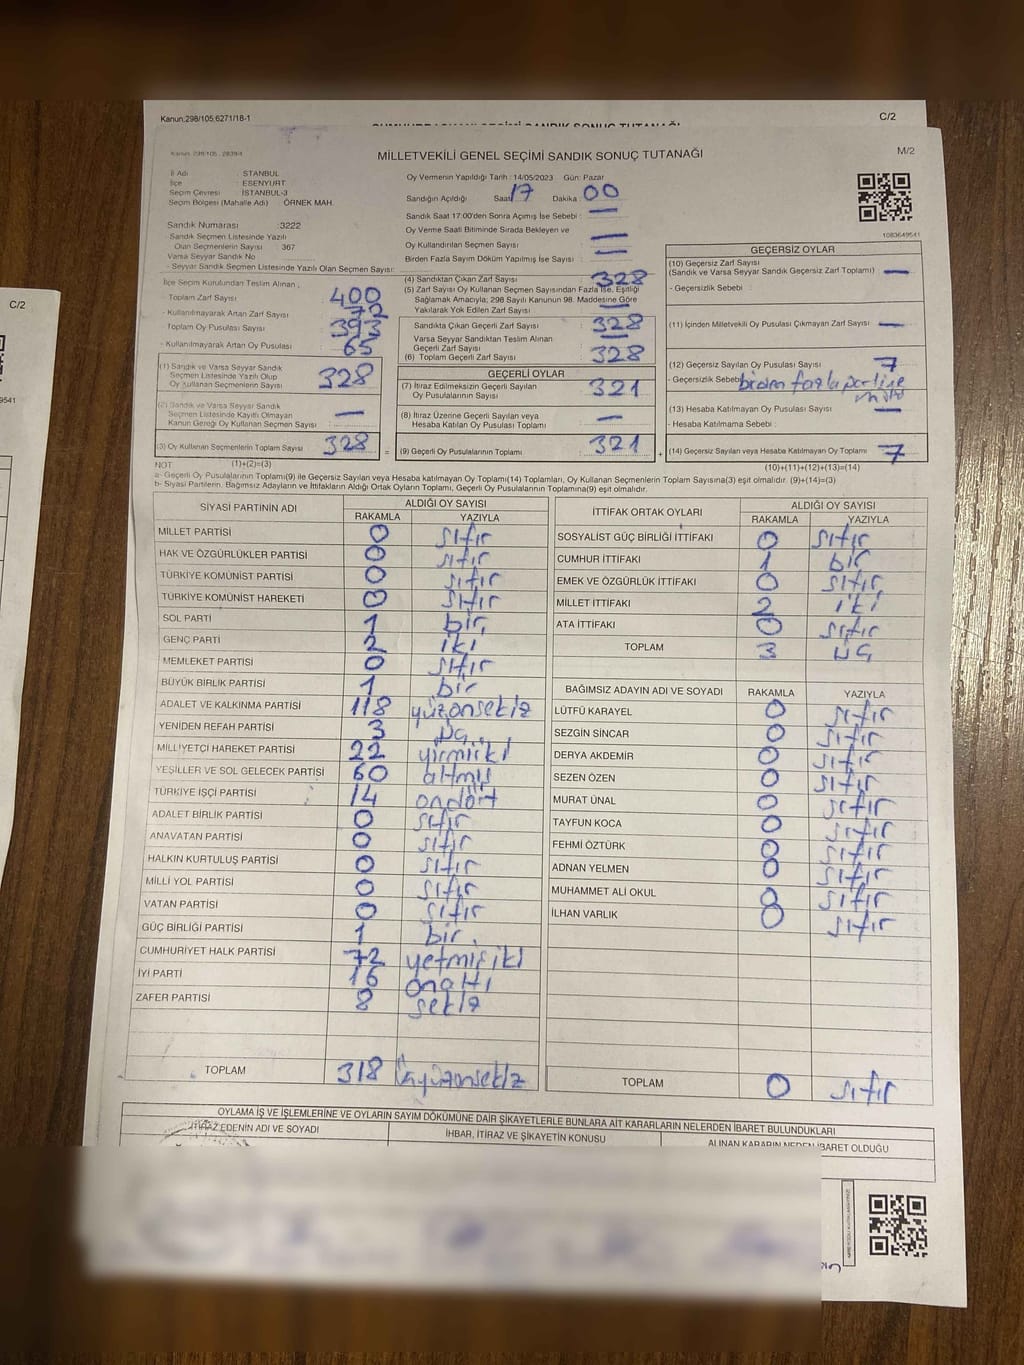 Kanun;298/105;6271/18-1
C/2
M/2
MİLLETVEKİLİ GENEL SEÇİMİ SANDIK SONUÇ TUTANAĞI
İl Adı : STANBUL
İlçe : ESENYURT
Seçim Çevresi : İSTANBUL-3
Seçim Bölgesi (Mahalle Adı) : ÖRNEK MAH.
Sandık Numarası :3222
Sandık Seçmen Listesinde Yazılı
Olan Seçmenlerin Sayısı : 367
Varsa Seyyar Sandık No
- Seyyar Sandık Seçmen Listesinde Yazılı Olan Seçmen Sayısı:
Oy Vermenin Yapıldığı Tarih : 14/05/2023 Gün: Pazar
Sandığın Açıldığı Saat 17 Dakika : 00
Sandık Saat 17:00'den Sonra Açımış İse Sebebi : —
Oy Verme Saati Bitiminde Sırada Bekleyen ve
Oy Kullandırılan Seçmen Sayısı : —
Birden Fazla Sayım Döküm Yapılmış İse Sayısı : —
1083649541
İlçe Seçim Kurulundan Teslim Alınan ;
Toplam Zarf Sayısı : 400
Kullanılmayarak Artan Zarf Sayısı : 72
Toplam Oy Pusulası Sayısı : 393
- Kullanılmayarak Artan Oy Pusulası : 65
(1) Sandık ve Varsa Seyyar Sandık
Seçmen Listesinde Yazılı Olup
Oy Kullanan Seçmenlerin Sayısı 328
(2) Sandık ve Varsa Seyyar Sandık
Seçmen Listesinde Kayıtlı Olmayan
Kanun Gereği Oy Kullanan Seçmen Sayısı —
(3) Oy Kullanan Seçmenlerin Toplam Sayısı 328
(4) Sandıktan Çıkan Zarf Sayısı : 328
(5) Zarf Sayısı Oy Kullanan Seçmen Sayısından Fazla İse, Eşitliği
Sağlamak Amacıyla; 298 Sayılı Kanunun 98. Maddesine Göre
Yakılarak Yok Edilen Zarf Sayısı : —
Sandıkta Çıkan Geçerli Zarf Sayısı : 328
Varsa Seyyar Sandıktan Teslim Alınan
Geçerli Zarf Sayısı : —
(6) Toplam Geçerli Zarf Sayısı : 328
GEÇERLİ OYLAR
(7) İtiraz Edilmeksizin Geçerli Sayılan
Oy Pusulalarının Sayısı : 321
(8) İtiraz Üzerine Geçerli Sayılan veya
Hesaba Katılan Oy Pusulası Toplamı : —
= (9) Geçerli Oy Pusulalarının Toplamı : 321
GEÇERSİZ OYLAR
(10) Geçersiz Zarf Sayısı
(Sandık ve Varsa Seyyar Sandık Geçersiz Zarf Toplamı) : —
- Geçersizlik Sebebi :
(11) İçinden Milletvekili Oy Pusulası Çıkmayan Zarf Sayısı : —
(12) Geçersiz Sayılan Oy Pusulası Sayısı : 7
- Geçersizlik Sebebi :
(13) Hesaba Katılmayan Oy Pusulası Sayısı : —
- Hesaba Katılmama Sebebi :
+ (14) Geçersiz Sayılan veya Hesaba Katılmayan Oy Toplamı : 7
NOT (1)+(2)=(3)
(10)+(11)+(12)+(13)=(14)
a- Geçerli Oy Pusulalarının Toplamı(9) ile Geçersiz Sayılan veya Hesaba katılmayan Oy Toplamı(14) Toplamları, Oy Kullanan Seçmenlerin Toplam Sayısına(3) eşit olmalıdır. (9)+(14)=(3)
b- Siyasi Partilerin, Bağımsız Adayların ve İttifakların Aldığı Ortak Oyların Toplamı, Geçerli Oy Pusulalarının Toplamına(9) eşit olmalıdır.
SİYASİ PARTİNİN ADI ALDIĞI OY SAYISI
RAKAMLA YAZIYLA
MİLLET PARTİSİ 0 sıfır
HAK VE ÖZGÜRLÜKLER PARTİSİ 0 sıfır
TÜRKİYE KOMÜNİST PARTİSİ 0 sıfır
TÜRKİYE KOMÜNİST HAREKETİ 0 sıfır
SOL PARTİ 1 bir
GENÇ PARTİ 2 iki
MEMLEKET PARTİSİ 0 sıfır
BÜYÜK BİRLİK PARTİSİ 1 bir
ADALET VE KALKINMA PARTİSİ 118 yüzonsekiz
YENİDEN REFAH PARTİSİ 3 üç
MİLLİYETÇİ HAREKET PARTİSİ 22 yirmiiki
YEŞİLLER VE SOL GELECEK PARTİSİ 60 altmış
TÜRKİYE İŞÇİ PARTİSİ 14 ondört
ADALET BİRLİK PARTİSİ 0 sıfır
ANAVATAN PARTİSİ 0 sıfır
HALKIN KURTULUŞ PARTİSİ 0 sıfır
MİLLİ YOL PARTİSİ 0 sıfır
VATAN PARTİSİ 0 sıfır
GÜÇ BİRLİĞİ PARTİSİ 1 bir
CUMHURİYET HALK PARTİSİ 72 yetmişiki
İYİ PARTİ 16 onaltı
ZAFER PARTİSİ 8 sekiz
TOPLAM 318 üçyüzonsekiz
İTTİFAK ORTAK OYLARI ALDIĞI OY SAYISI
RAKAMLA YAZIYLA
SOSYALİST GÜÇ BİRLİĞİ İTTİFAKI 0 sıfır
CUMHUR İTTİFAKI 1 bir
EMEK VE ÖZGÜRLÜK İTTİFAKI 0 sıfır
MİLLET İTTİFAKI 2 iki
ATA İTTİFAKI 0 sıfır
TOPLAM 3 üç
BAĞIMSIZ ADAYIN ADI VE SOYADI RAKAMLA YAZIYLA
LÜTFÜ KARAYEL 0 sıfır
SEZGİN SİNCAR 0 sıfır
DERYA AKDEMİR 0 sıfır
SEZEN ÖZEN 0 sıfır
MURAT ÜNAL 0 sıfır
TAYFUN KOCA 0 sıfır
FEHMİ ÖZTÜRK 0 sıfır
ADNAN YELMEN 0 sıfır
MUHAMMET ALİ OKUL 0 sıfır
İLHAN VARLIK 0 sıfır
TOPLAM 0 sıfır
OYLAMA İŞ VE İŞLEMLERİNE VE OYLARIN SAYIM DÖKÜMÜNE DAİR ŞİKAYETLERLE BUNLARA AİT KARARLARIN NELERDEN İBARET BULUNDUKLARI
İTİRAZ EDENİN ADI VE SOYADI
İHBAR, İTİRAZ VE ŞİKAYETİN KONUSU
ALINAN KARARIN NEDEN İBARET OLDUĞU
C/2
9541